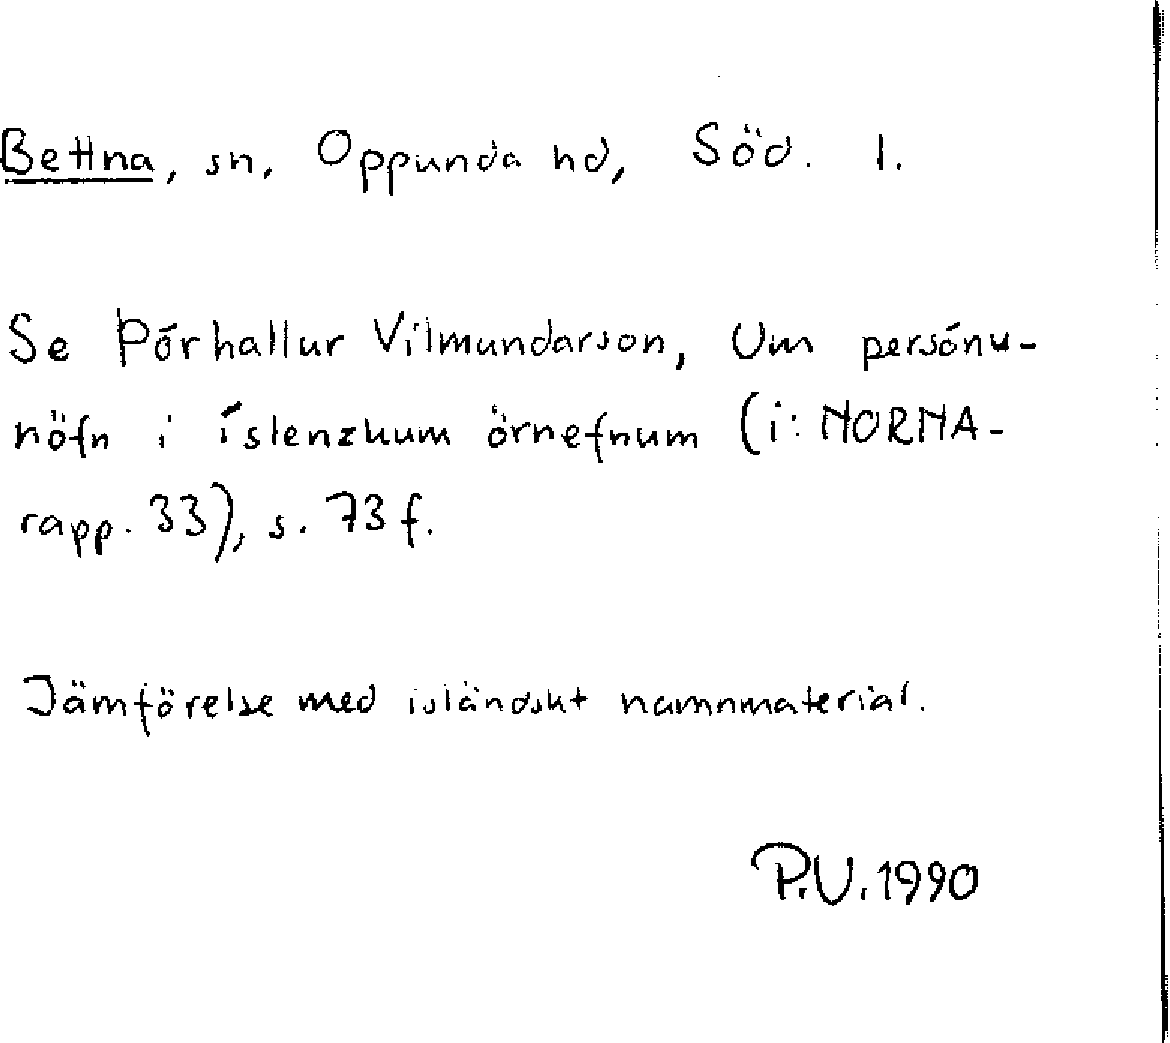 Bettna, sn, Oppunda hd, Söd. l.
Se Þórhallur Vilmundarson, Um persónu-
nöfn i íslenzkum örnefnum (i: NORNA-
rapp. 33), s. 73 f.
Jämförelse med isländskt namnmaterial.
P.V. 1990